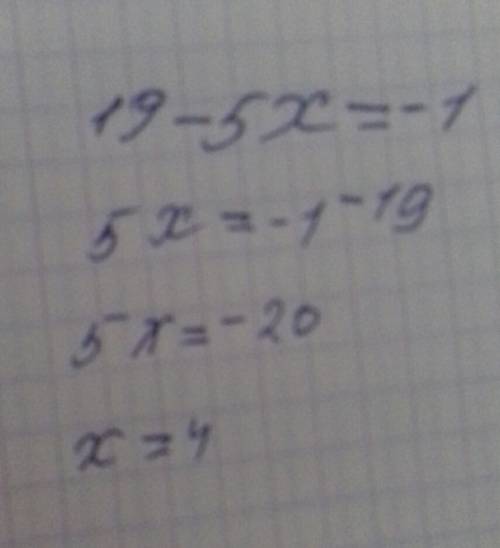 19-5x=-1
5x=-1-19
5x=-20
x=4